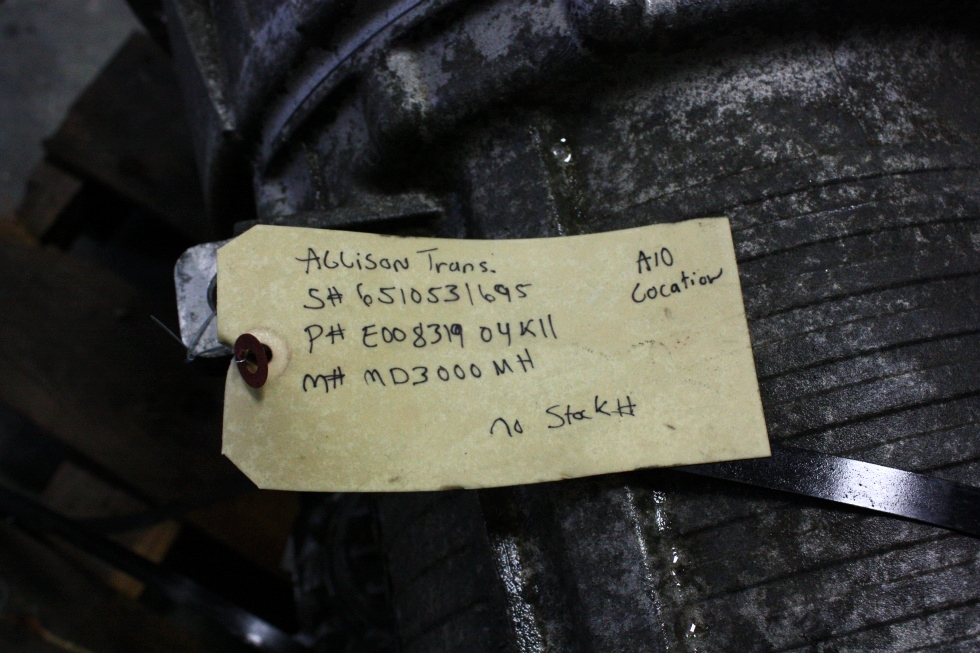 Allison Trans.
S# 6510531695
P# E008319 04K11
M# MD3000MH
no Stock#
A10
Location